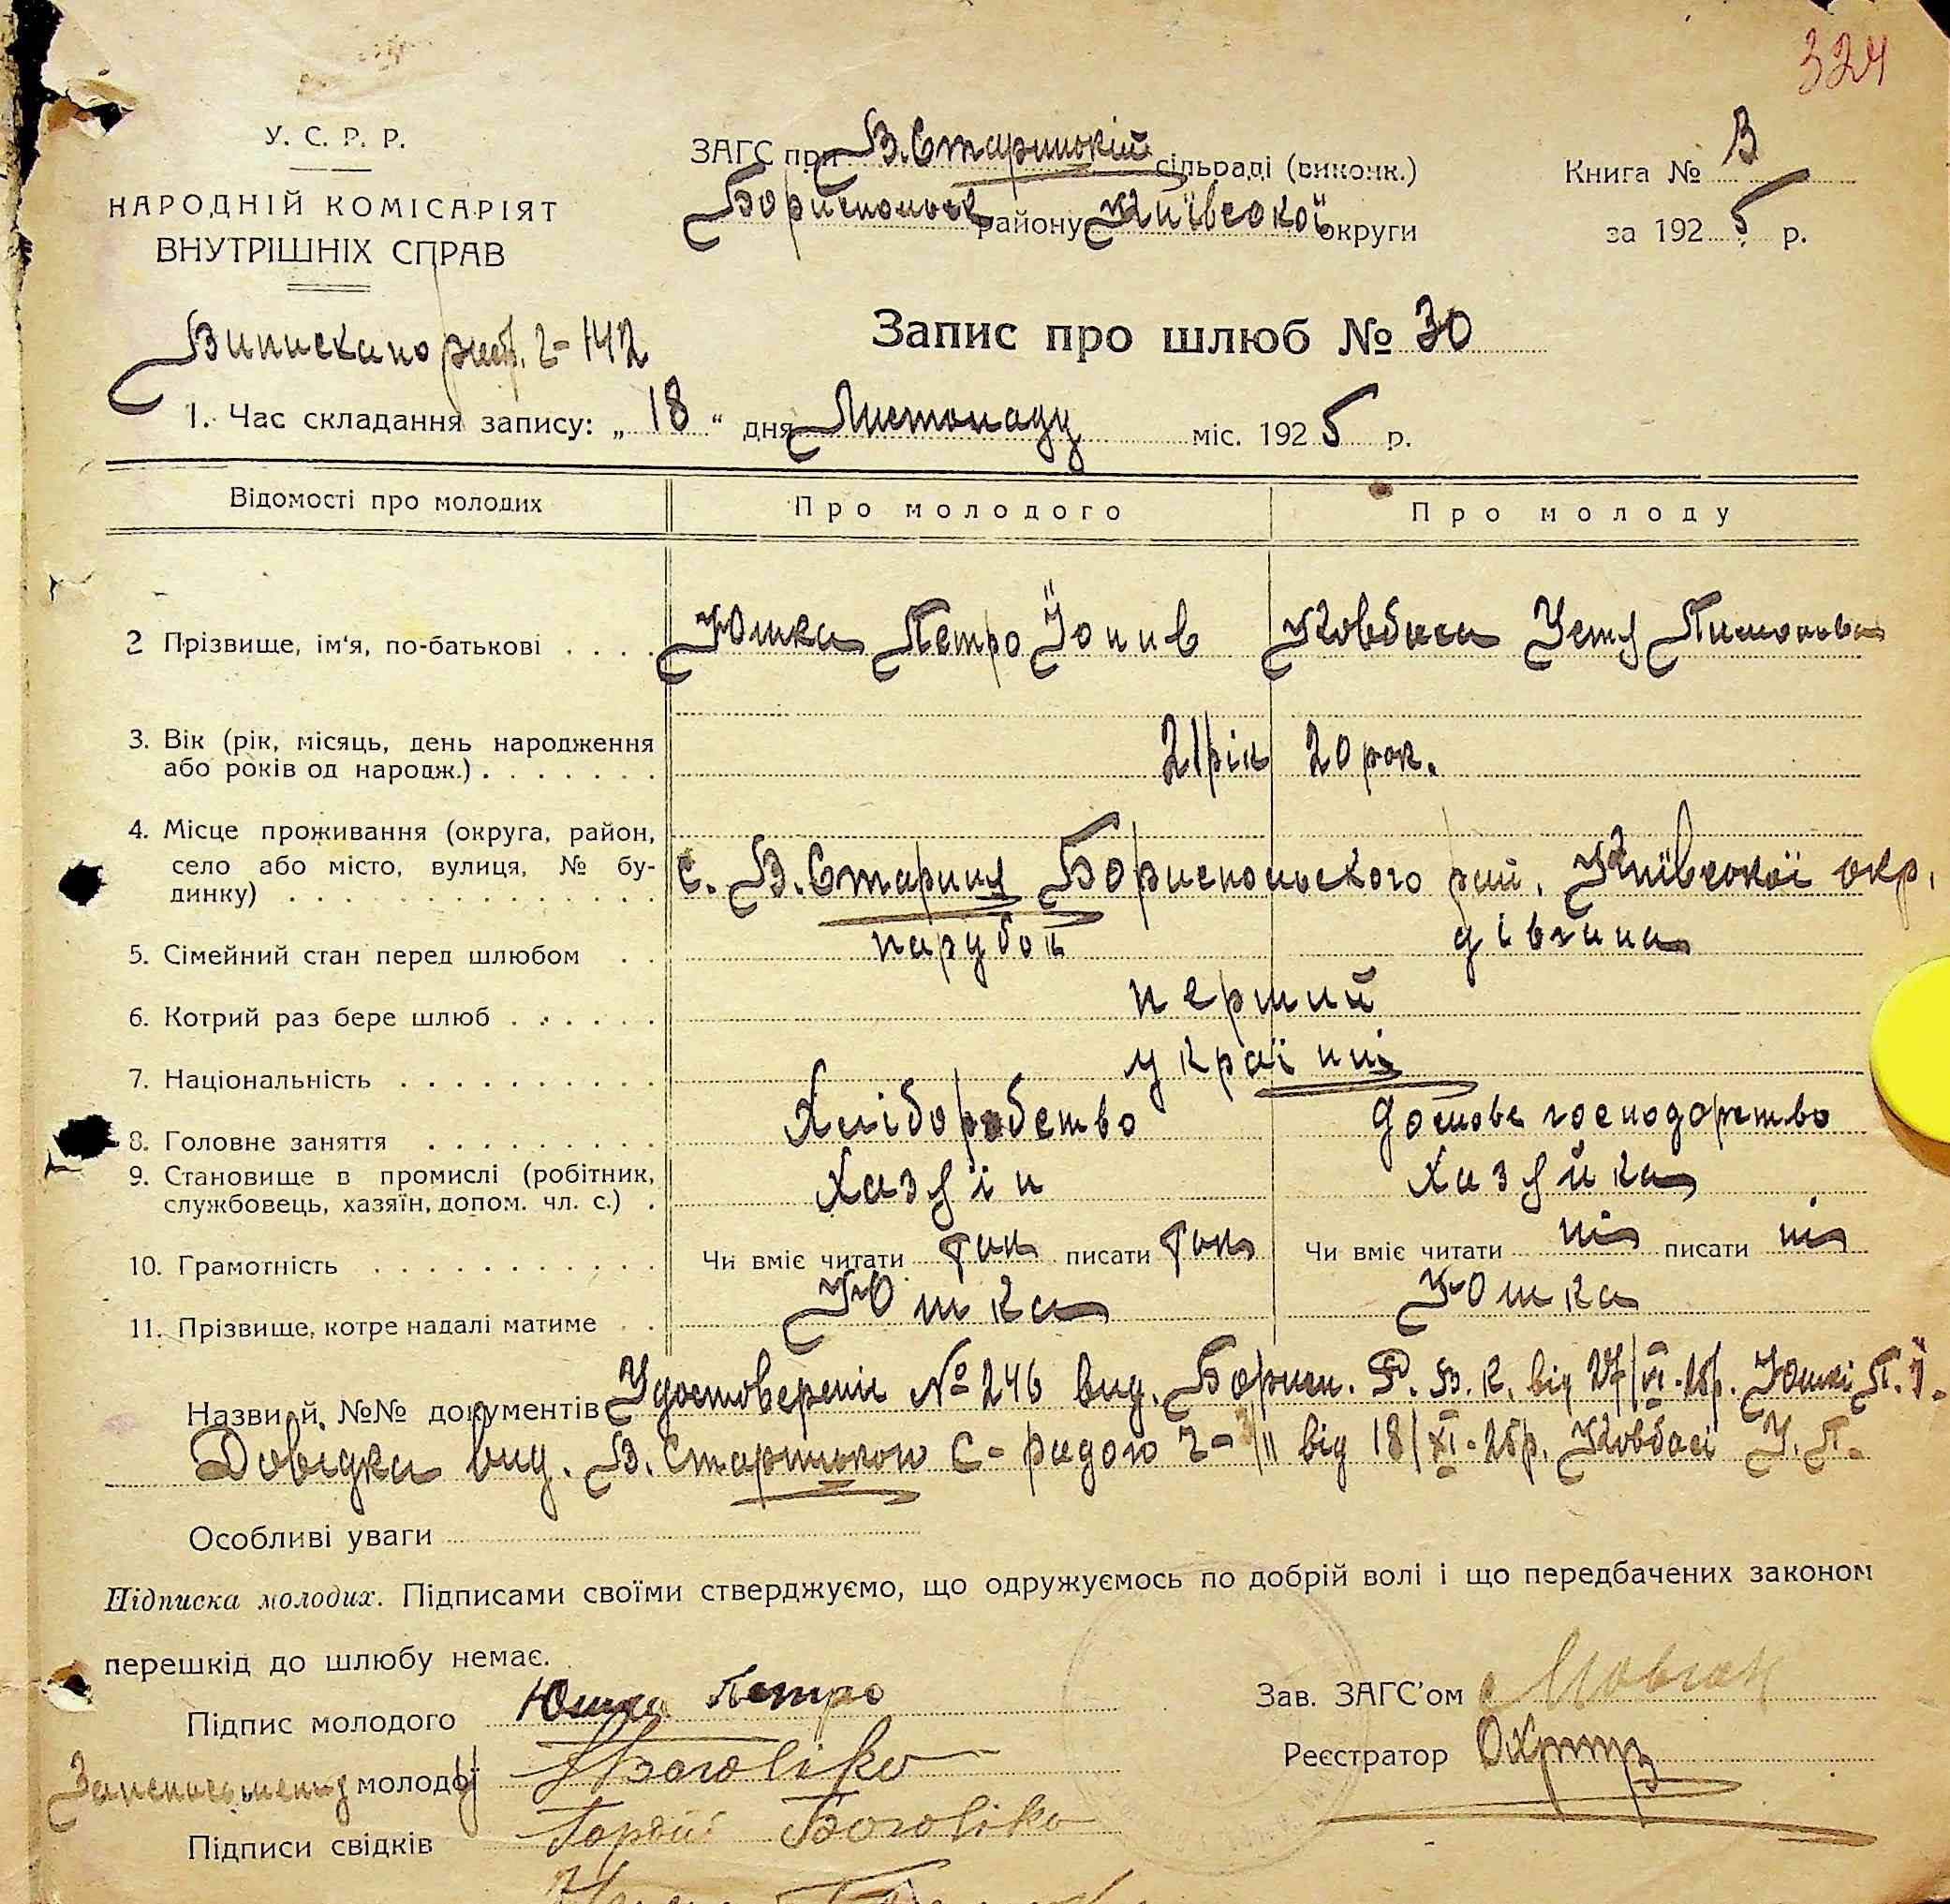 324
У. С. Р. Р.
НАРОДНІЙ КОМІСАРІЯТ
ВНУТРІШНІХ СПРАВ
ЗАГС при В. Старицькій сільраді (виконк.)
Бориспольськ району Київської округи
Книга № В
за 1925 р.
Виписка по 2-142
Запис про шлюб № 30
1. Час складання запису: „18“ дня Листопаду міс. 1925 р.
Відомості про молодих Про молодого Про молоду
2 Прізвище, ім'я, по-батькові Юшка Петро Йонив Ковбаса Устя
3. Вік (рік, місяць, день народження
або років од народж.) 21 рік 20 рок.
4. Місце проживання (округа, район,
село або місто, вулиця, № бу-
динку) с. В. Стариця Бориспольського рай. Київської окр.
5. Сімейний стан перед шлюбом парубок дівчина
6. Котрий раз бере шлюб перший
7. Національність українці
8. Головне заняття Хліборобство домове господарство
9. Становище в промислі (робітник,
службовець, хазяїн, допом. чл. с.) Хазяїн Хазяйка
10. Грамотність Чи вміє читати так писати так Чи вміє читати ні писати ні
11. Прізвище, котре надалі матиме Юшка Юшка
Назви й №№ документів Удостоверені № 246 вид. Борисп. Р. В. К. від Юшкі П. Й.
Довідка вид. В. Старицькою С-радою від 18/XI-25р. Ковбасі У. П.
Особливі уваги
Підписка молодих. Підписами своїми стверджуємо, що одружуємось по добрій волі і що передбачених законом
перешкід до шлюбу немає.
Підпис молодого Юшка Петро
Зав. ЗАГС'ом
молодої
Реєстратор
Підписи свідків Гордій